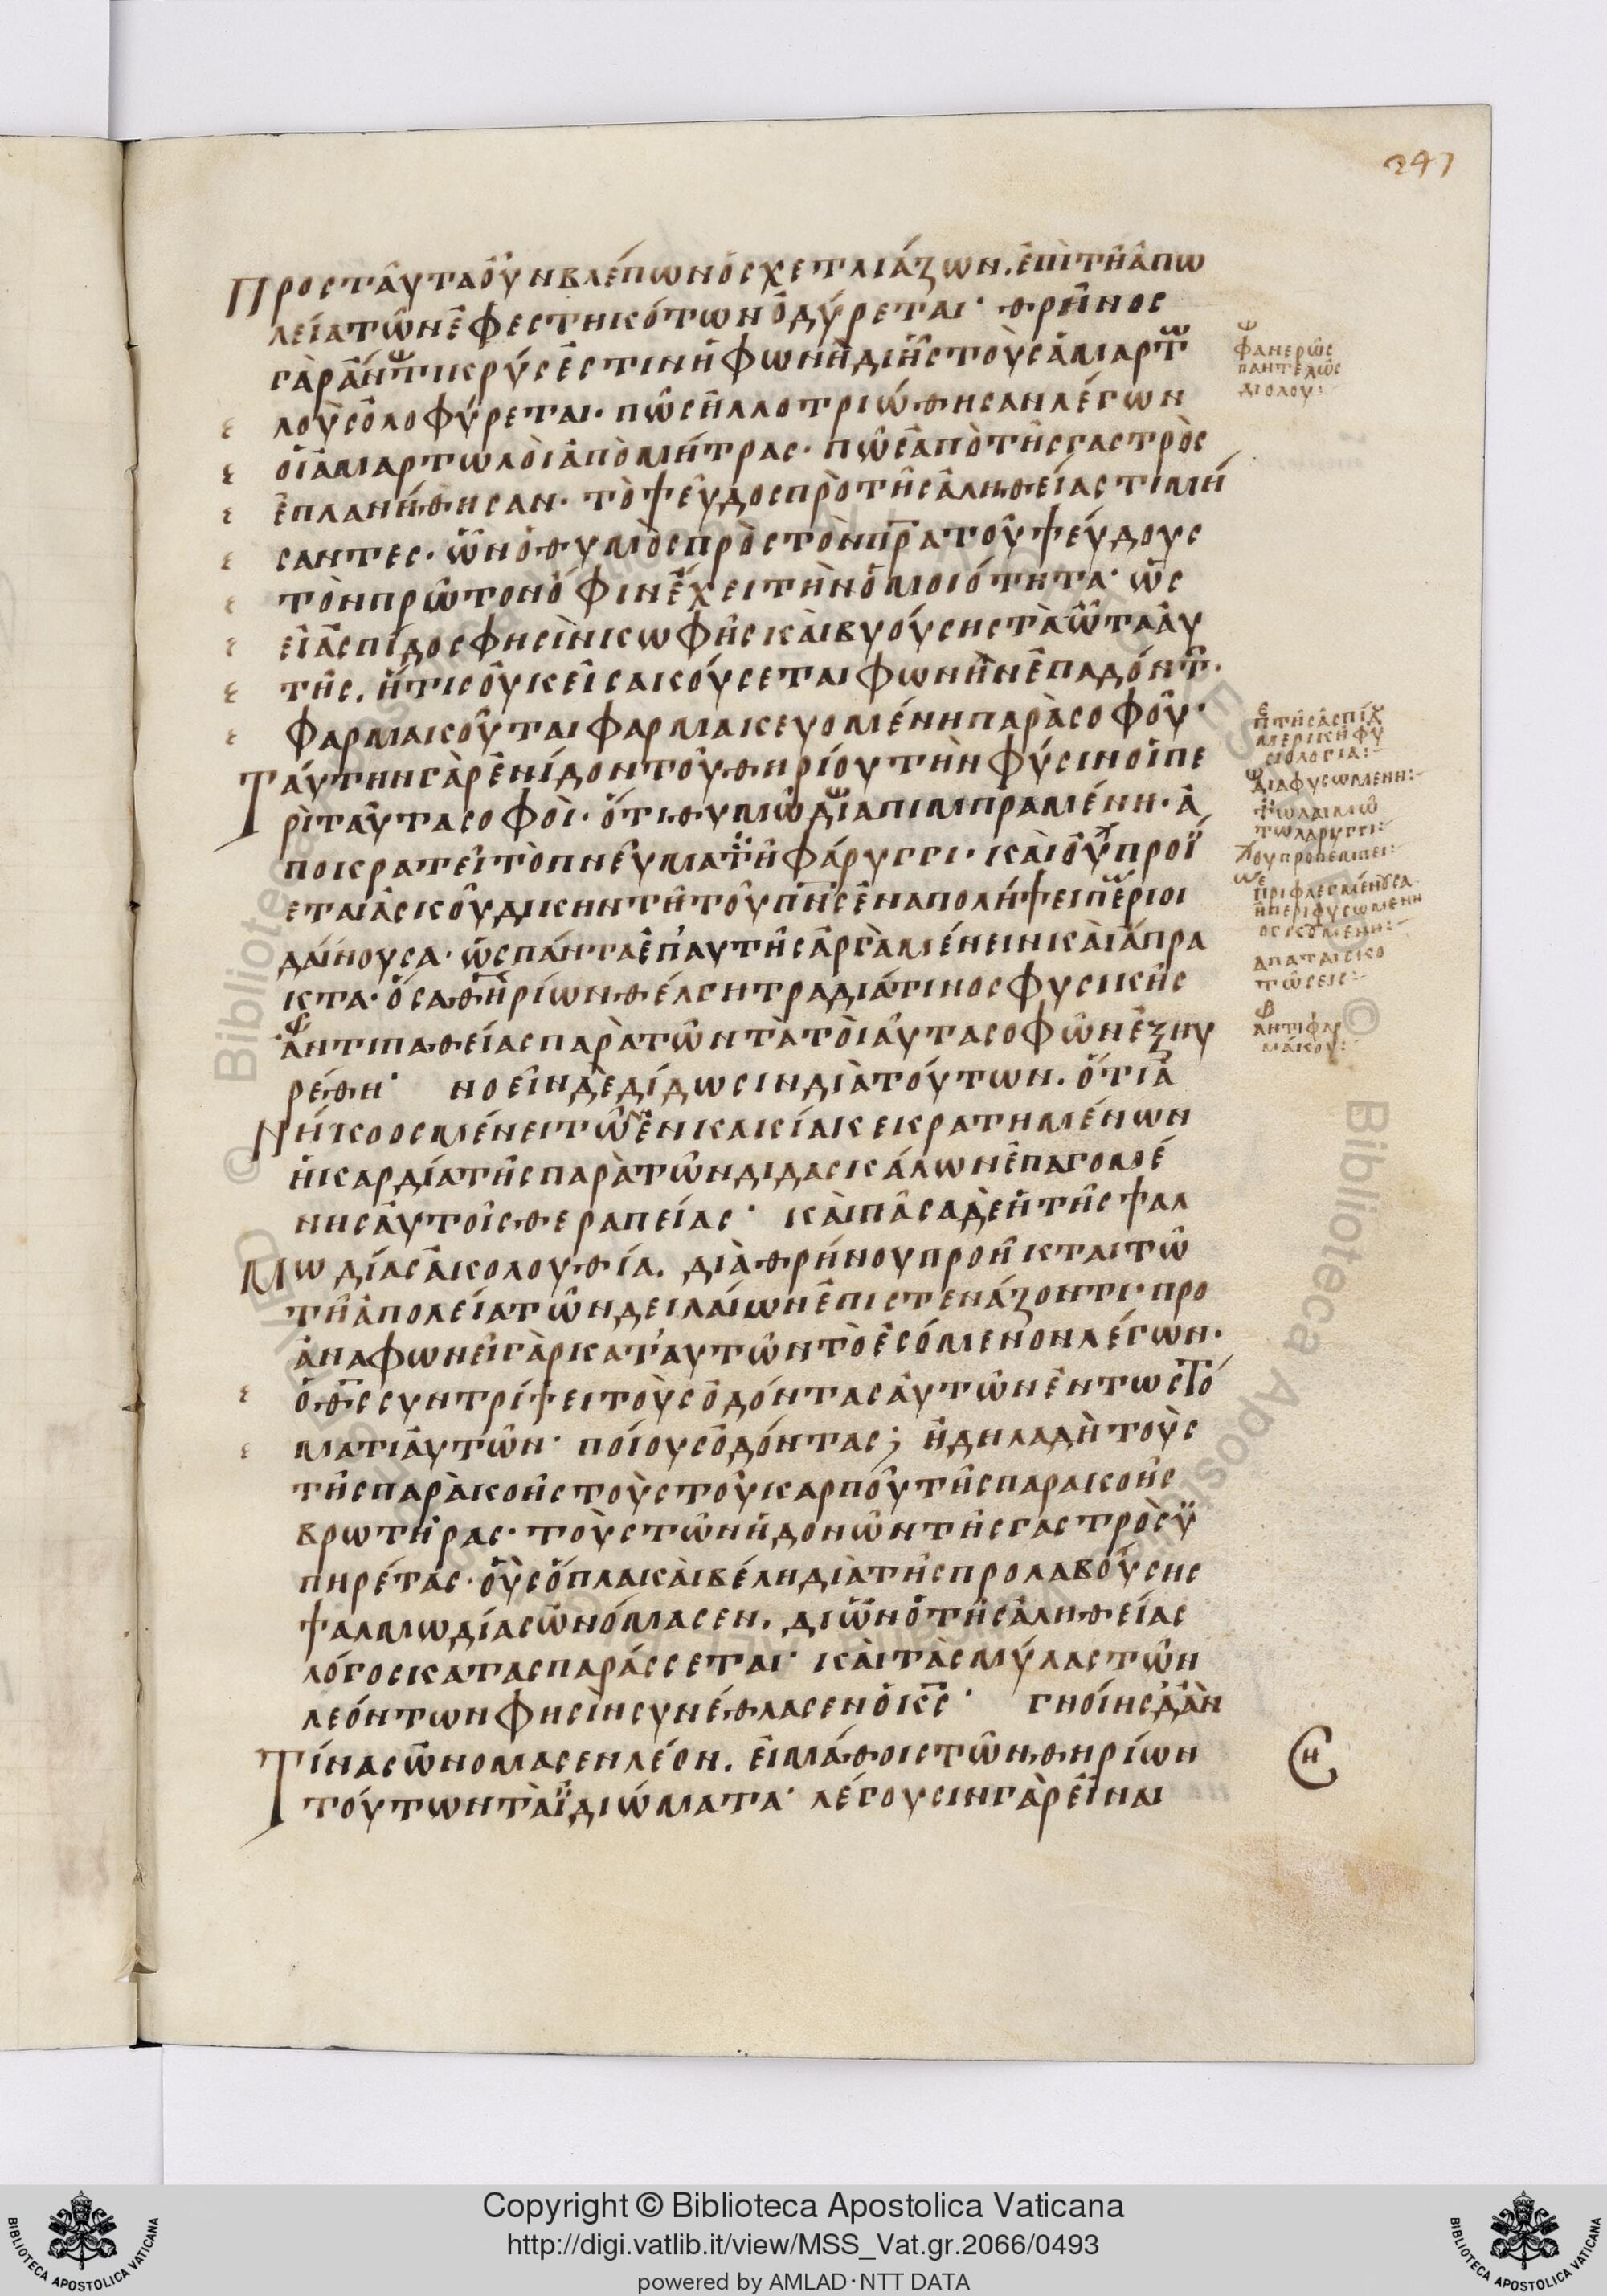 247
Προς ταῦτα οὖν βλέπων ὁ σχετλιάζων. ἐπὶ τῆ ἀπω
λεία τῶν ἐφεστηκότων ὀδύρεται· θρῆνος
γὰρ ἄντικρύς ἐστιν ἡ φωνὴ δι ἧς τοὺς ἁμαρτω
λοὺς ὀλοφύρεται. πῶς ἠλλοτριώθησαν λέγων
οἱ ἁμαρτωλοὶ ἀπὸ μήτρας· πῶς ἀπὸ τῆς γαστρὸς
ἐπλανήθησαν. τὸ ψεῦδος πρὸ τῆς ἀληθείας τιμή
σαντες. ὧν ὁ θυμὸς πρὸς τὸν πρα τοῦ ψεύδους
τὸν πρῶτον ὄφιν ἔχει τὴν ὁμοιότητα· ὡς
εἰ ἀσπίδος φησὶν κωφῆς καὶ βυούσης τὰ ὦτα αὐ
τῆς. ἥτις οὐκ εἰσακούσεται φωνὴν ἐπαδόντ.
φαρμακοῦται φαρμακευομένη παρὰ σοφοῦ·
Ταύτην γὰρ ἐνίδον τοῦ θηρίου τὴν φύσιν οἱ πε
ρὶ ταῦτα σοφοὶ. ὅτι θυμῶ διαπιμπραμένη. ἀ
ποκρατεῖ τὸ πνεῦμα τῆ φάρυγγι. καὶ οὐ προΐ
εται ἀσκοῦ δίκην τῆ τοῦ πνς ἐναπολήψει περιοι
δαίνουσα. ὡς πάντα ἐπ αυτῆς ἀργὰ μένειν καὶ ἄπρα
κτα· ὅσα θηρίων θέλγητρα διά τινος φυσικῆς
ἀντιπαθείας παρὰ τῶν τὰ τοιαῦτα σοφῶν ἐξηυ
ρέθη· νοεῖν δὲ δίδωσιν διὰ τούτων. ὅτι ἀ
νήκοος μένει τῶν ἐν κακία κεκρατημένων
ἡ καρδία τῆς παρὰ τῶν διδασκάλων ἐπαγομέ
νης αὐτοῖς θεραπείας· καὶ πᾶσα δὲ ἡ τῆς ψαλ
μωδίας ἀκολουθία. διὰ θρήνου προῆκται τῶ
τῆ ἀπολεία τῶν δειλαίων ἐπιστενάζοντι. προ
ἀναφωνεῖ γὰρ κατ αυτῶν τὸ ἐσόμενον λέγων.
ὁ θς συντρίψει τοὺς ὀδόντας αὐτῶν ἐν τω στό
ματι αὐτῶν· ποίους ὀδόντας; ἢ δηλαδὴ τοὺς
τῆς παρὰκοῆς τοὺς τοῦ καρποῦ τῆς παρακοῆς
βρωτῆρας· τοὺς τῶν ἡδονῶν τῆς γαστρὸς ὑ
πηρέτας. οὓς ὅπλα καὶ βέλη διὰ τῆς προλαβούσης
ψαλμωδίας ὠνόμασεν. δι ὧν ὁ τῆς ἀληθείας
λόγος κατασπαράσσεται· καὶ τὰς μύλας τῶν
λεόντων φησὶν συνέθλασεν ὁ κς· γνοίης δ ἂν
Τίνας ὠνομασεν λέον. εἰ μάθοις τῶν θηρίων
τούτων τὰ ἰδιώματα· λέγουσιν γὰρ εἶναι
φανερῶς
παντελῶς
διολου:
π τῆς ἀσπίδ
μερικὴ φυ
σιολογια:
διαφυσωμενη:
τῶ λαιμῶ
τω λαρυγγι:
ου προπεμπει:
πριφλεγμένουσα
ἢ περιφυσωμενη
ογκουμενη:
απαται γκο
τώσεις:
αντιφαρ
μάκου:
Copyright © Biblioteca Apostolica Vaticana
http://digi.vatlib.it/view/MSS_Vat.gr.2066/0493
powered by AMLAD·NTT DATA